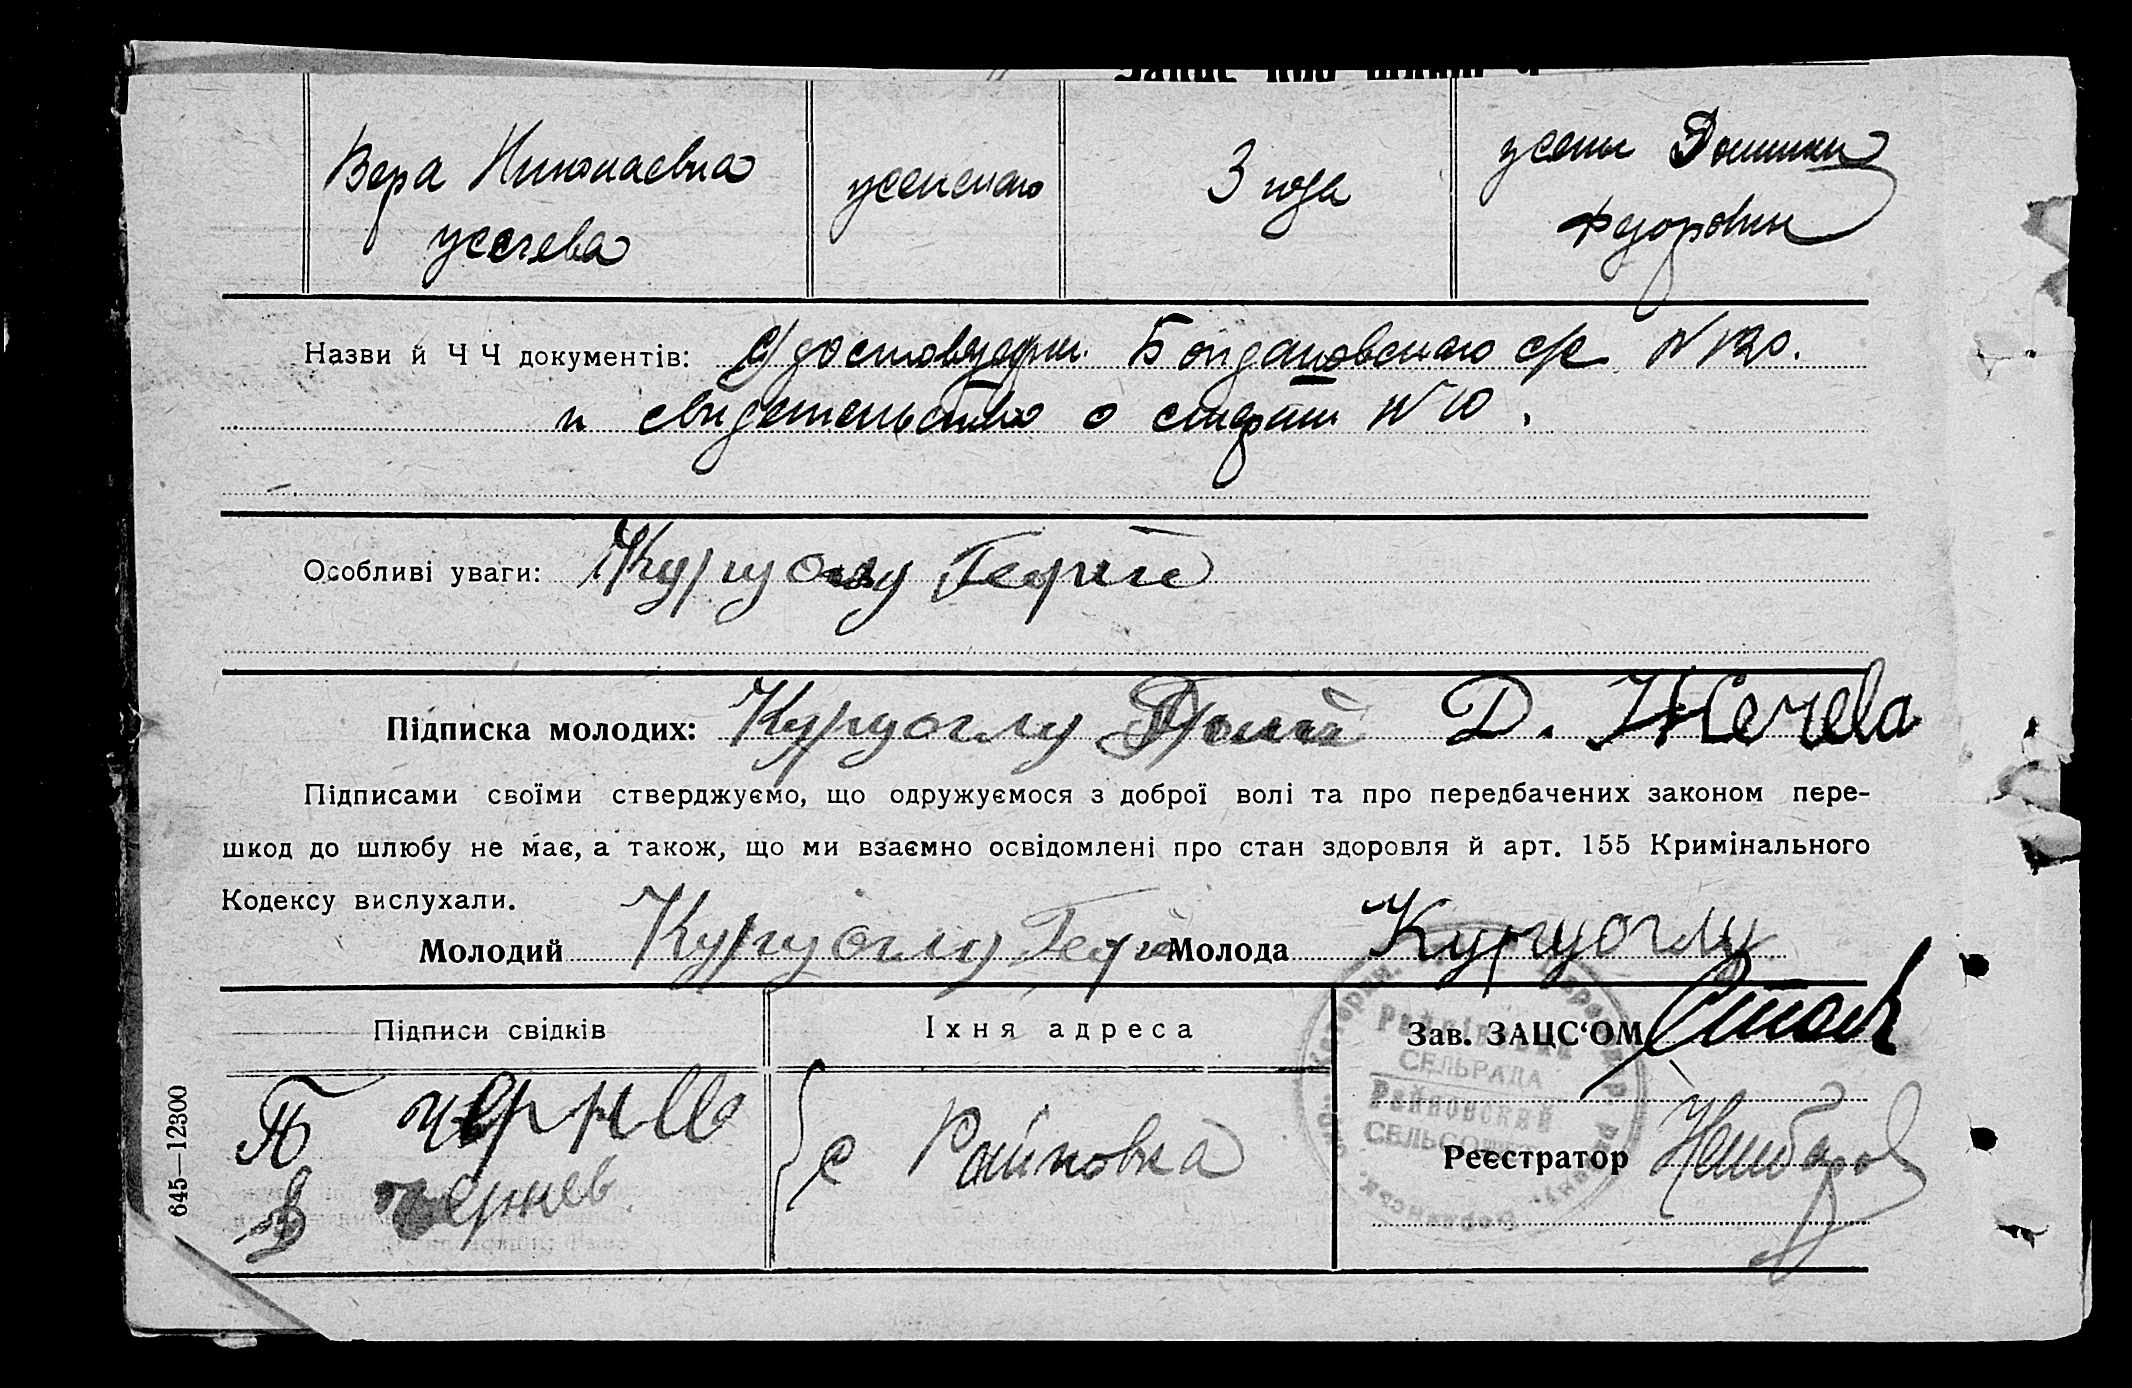 Запис про шлюб ч.
Вера Николаевна женского 3 года жены Домники
Жечева Федоровны
Назви й Ч Ч документів: Удостоверен. Богдановского с/с N 120.
и свидетельство о смерти N 10.
Особливі уваги: Куруоглу
Підписка молодих: Куруоглу Д. Жечева
Підписами своїми стверджуємо, що одружуємося з доброї волі та про передбачених законом пере-
шкод до шлюбу не має, а також, що ми взаємно освідомлені про стан здоровля й арт. 155 Кримінального
Кодексу вислухали.
Молодий Куруоглу Молода Куруоглу
Підписи свідків Їхня адреса Зав. ЗАЦС‘ОМ
П Чернев с Райновка
В Чернев
Реєстратор
Райнівська
СЕЛЬРАДА
Райновский
СЕЛЬСОВЕТ
645—12300